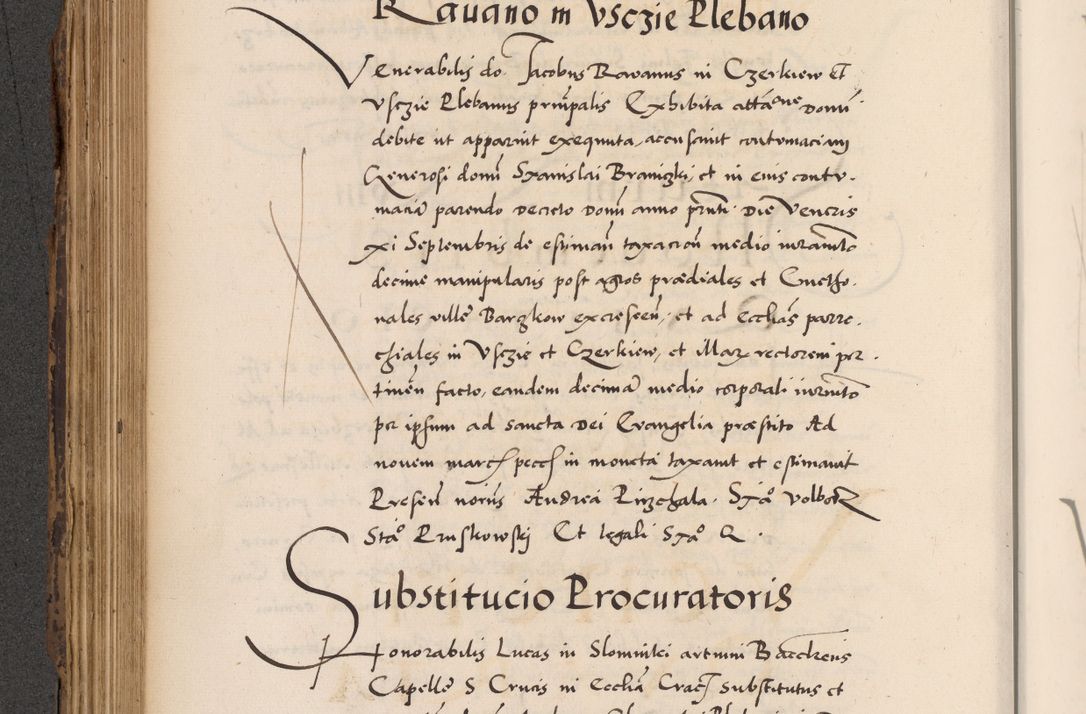 Ravano in Vsczie Plebano
Venerabilis do. Jacobus Ravanus in Czerkiew et
Vsczie Plebanus prīcipalis Exhibita attāone Domī
debite ut apparuit exequuta, accusavit contumaciam
Generosi domī Stanislai Braniczki, et in eius contu-
macia parendo Decreto Domī anno prnti Die Veneris
xi Septembris de estiman taxacion medio iuramto
decime manipularis post agros prædiales et Cmetho-
nales ville Barczkow excrescen, et ad Ecclias parro-
chiales in Vsczie et Czerkiew, et illarum rectorem per-
tinen facto, eandem decimā medio corporali iuramto
per ipsum ad sancta Dei Evangelia præstito Ad
novem march pecch in moneta taxavit et estimavit
Presen noriis Andrea Stao Volborz
Stao Pruskowski Et legali Stao Q.
Substitucio Procuratoris
Honorabilis Lucas in Slomniki artium Baccherius
Capelle S Crucis in Ecclia Crac Substitutus et